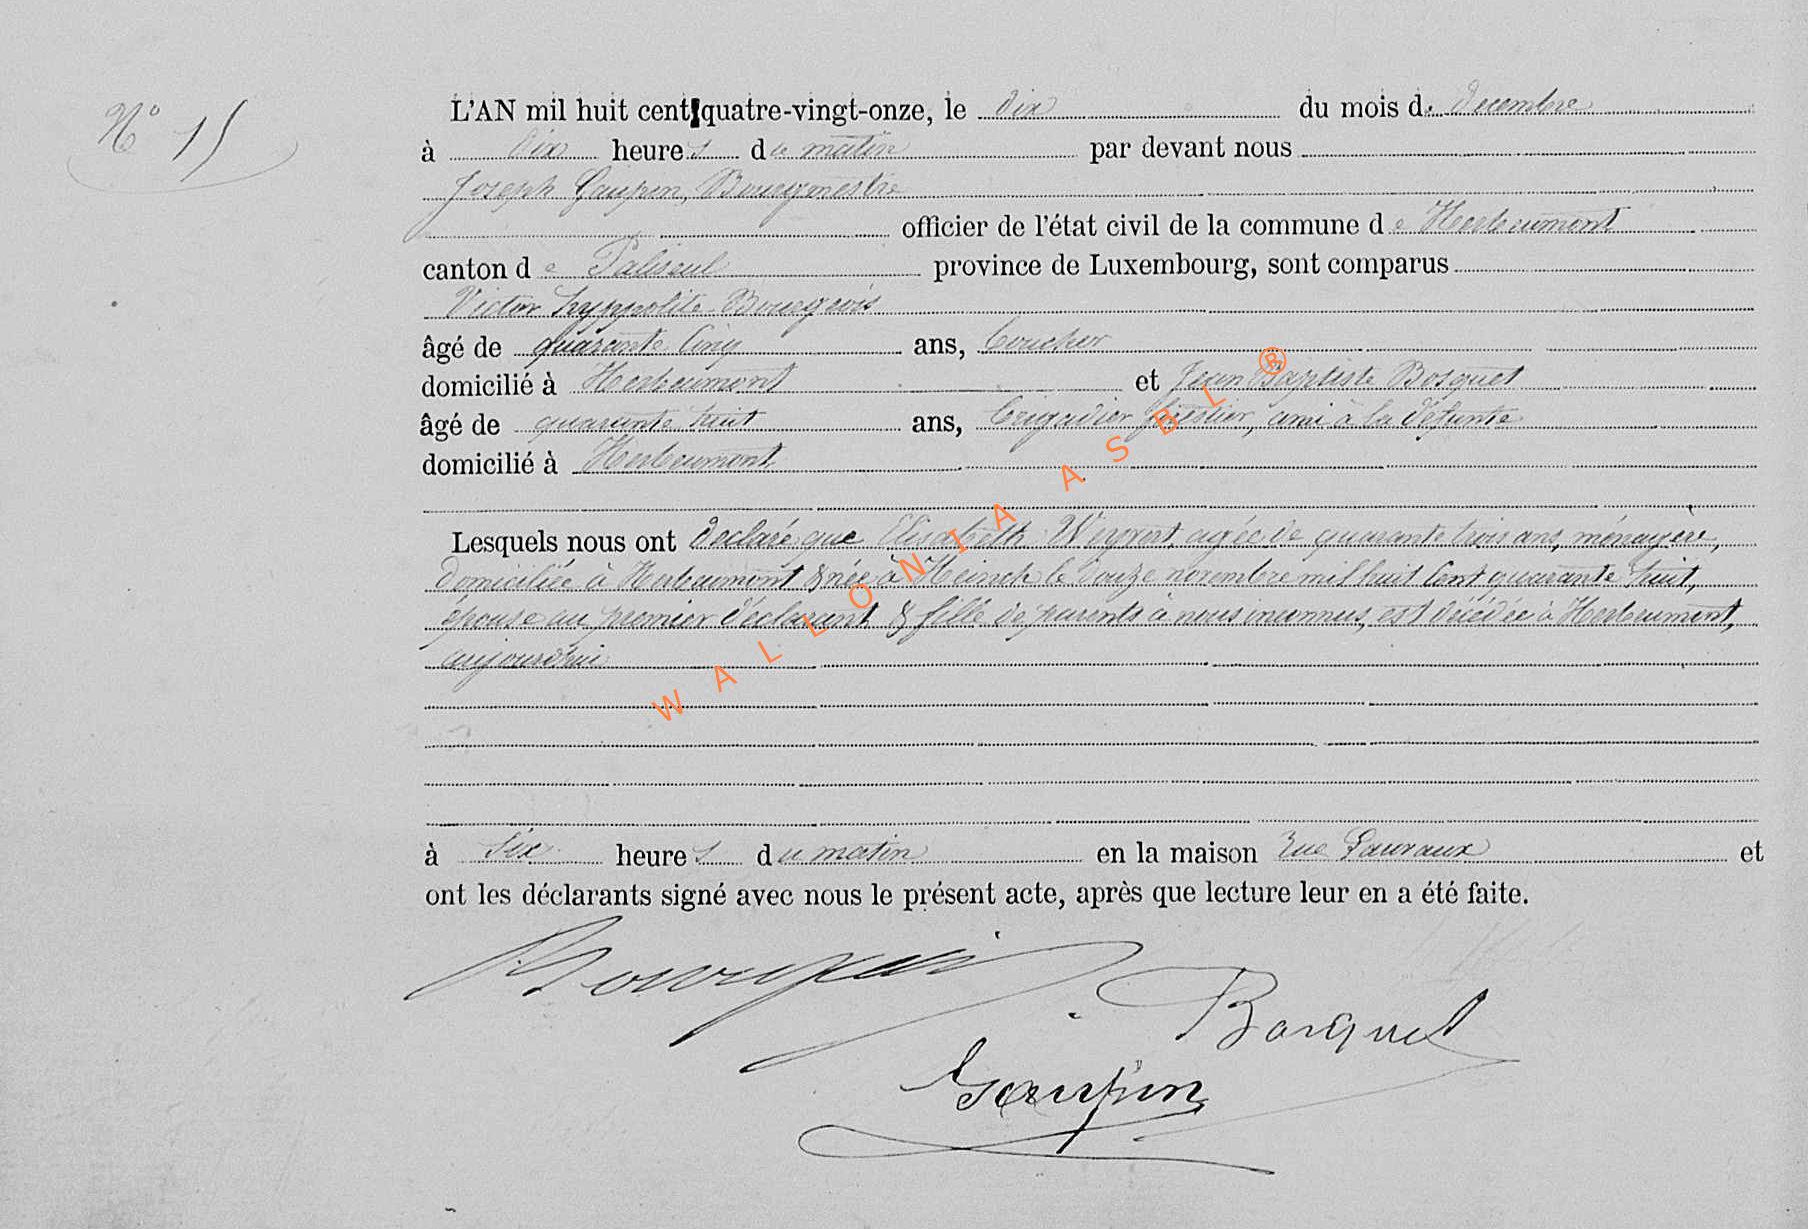 N° 15
L'AN mil huit cent quatre-vingt-onze, le dix du mois de décembre
à dix heures du matin par devant nous
Joseph Gaupin, Bourgmestre
officier de l'état civil de la commune de Herbeumont
canton de Paliseul province de Luxembourg, sont comparus
Victor hyppolite Bourgeois
âgé de quarante cinq ans,
domicilié à Herbeumont et Jean Baptiste Bosquet
âgé de quarante huit ans, brigadier forestier, ami à la défunte
domicilié à Herbeumont
Lesquels nous ont déclaré que Elisabeth Weyrert, agée de quarante trois ans, ménagère,
domiciliée à Herbeumont & née à Heinch le douze novembre mil huit cent quarante huit,
épouse au premier déclarant & fille de parents à nous inconnus, est décédée à Herbeumont,
aujourd'hui
à six heures du matin en la maison rue Lauvaux et
ont les déclarants signé avec nous le présent acte, après que lecture leur en a été faite.
Bourgeois
Bosquet
Gaupin
WALLONIA ASBL ®